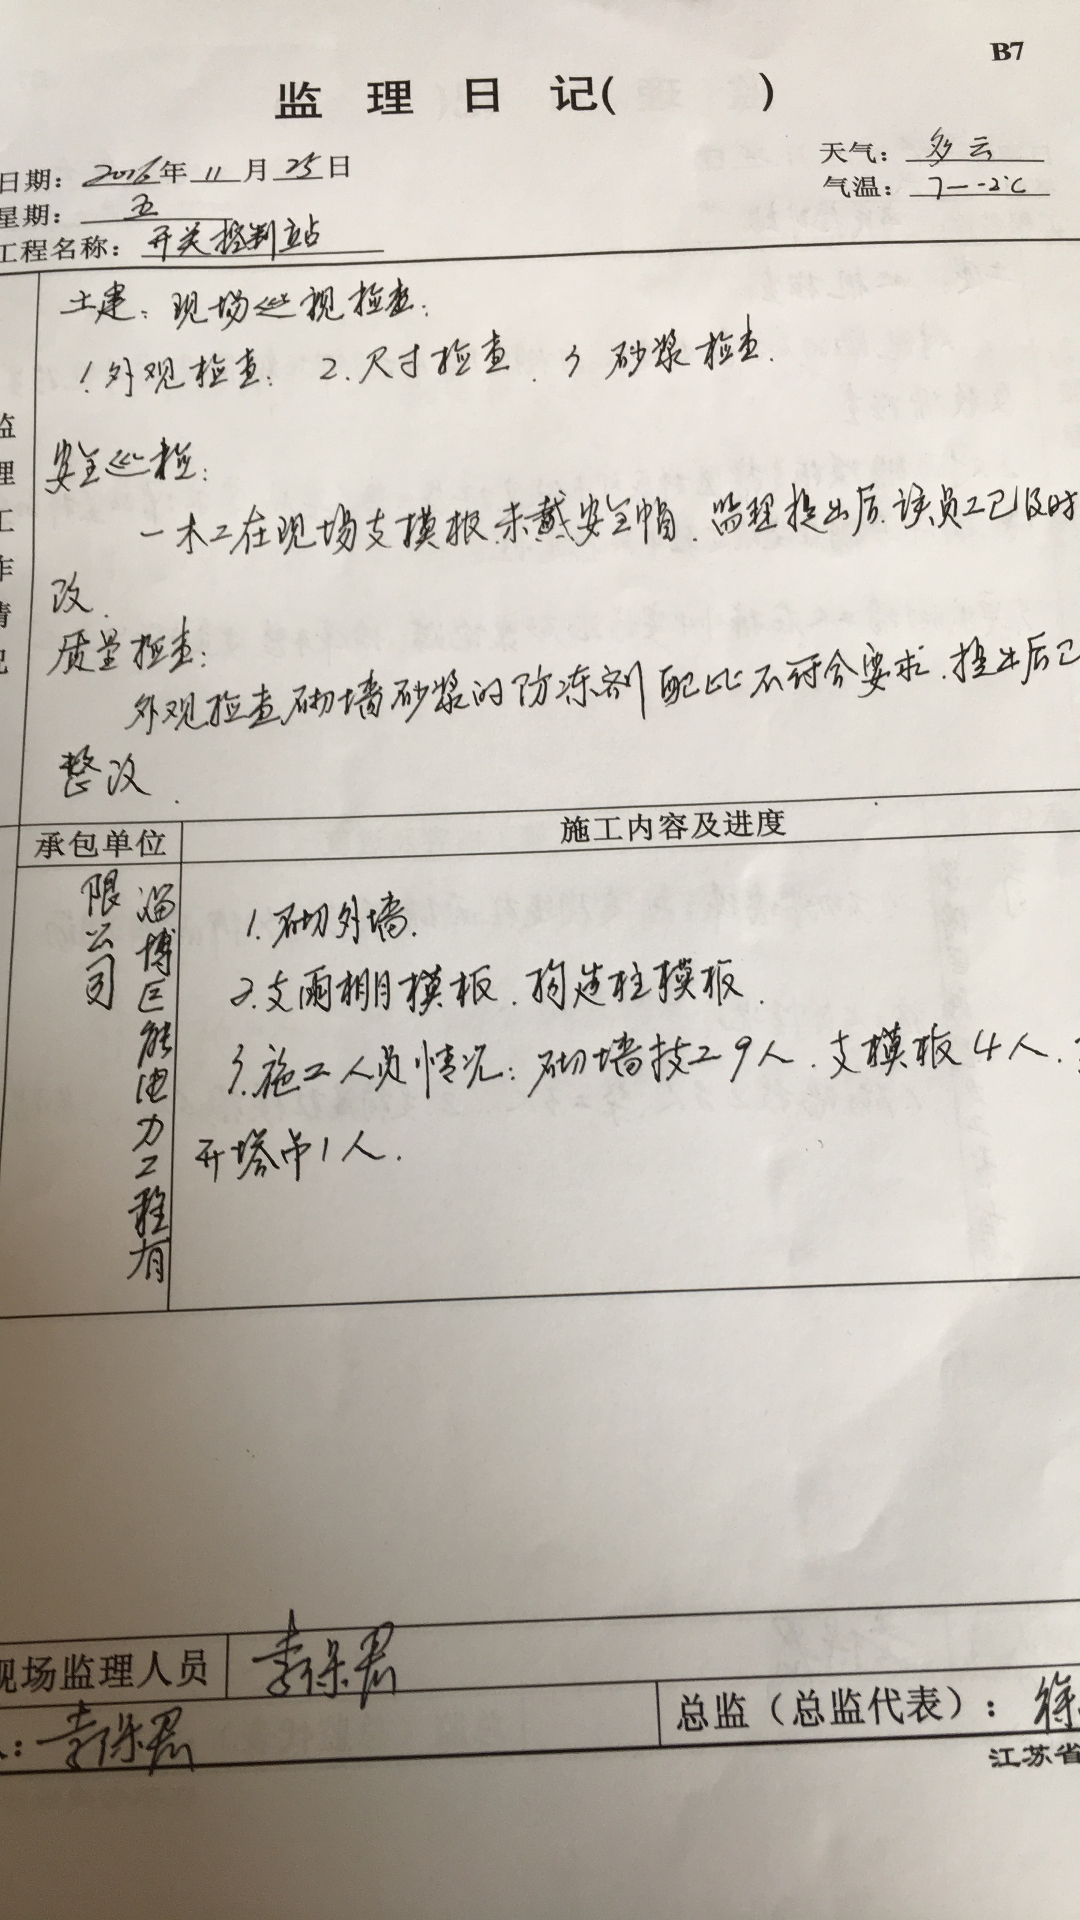 B7
监 理 日 记( )
日期：2016年11月25日
天气：多云
星期：五
气温：7—-2℃
工程名称：开关控制站
监理工作情况
土建：现场巡视检查：
1.外观检查： 2.尺寸检查． 3 砂浆检查．
安全巡检：
一木工在现场支模板未戴安全帽．监理提出后．该员工已及时
改．
质量检查：
外观检查砌墙砂浆的防冻剂配比不符合要求．提出后已
整改．
承包单位
施工内容及进度
淄博巨能电力工程有
限公司
1.砌外墙．
2.支雨棚月模板．构造柱模板．
3.施工人员情况：砌墙技工9人．支模板4人．
开塔吊1人．
现场监理人员
李保君
：李保君
总监（总监代表）：徐
江苏省